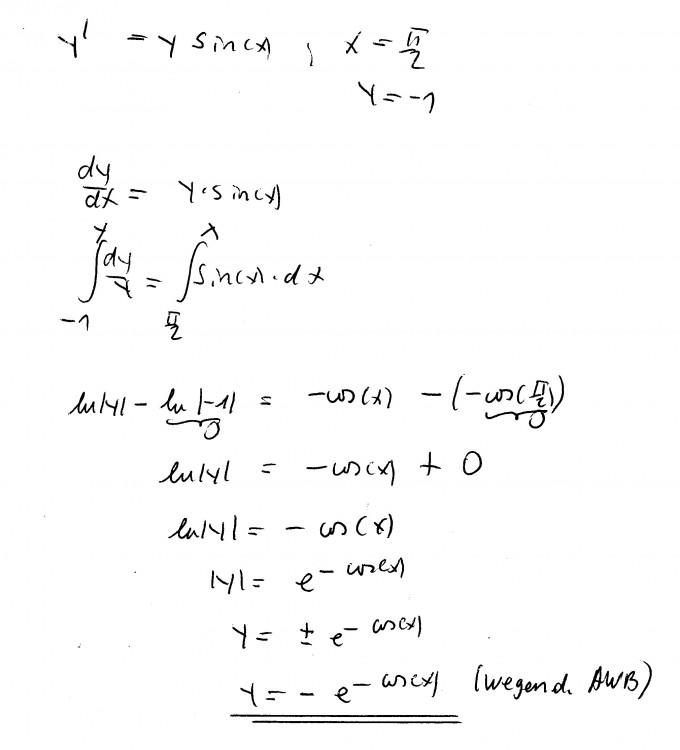 y' = y sin(x) ; x = π/2
y = -1
dy/dx = y·sin(x)
∫_{-1}^{y} dy/y = ∫_{π/2}^{x} sin(x)·dx
ln|y| - ln|-1| = -cos(x) - (-cos(π/2))
0 0
ln|y| = -cos(x) + 0
ln|y| = - cos(x)
|y| = e^{- cos(x)}
y = ± e^{- cos(x)}
y = - e^{- cos(x)} (wegen d. AWB)